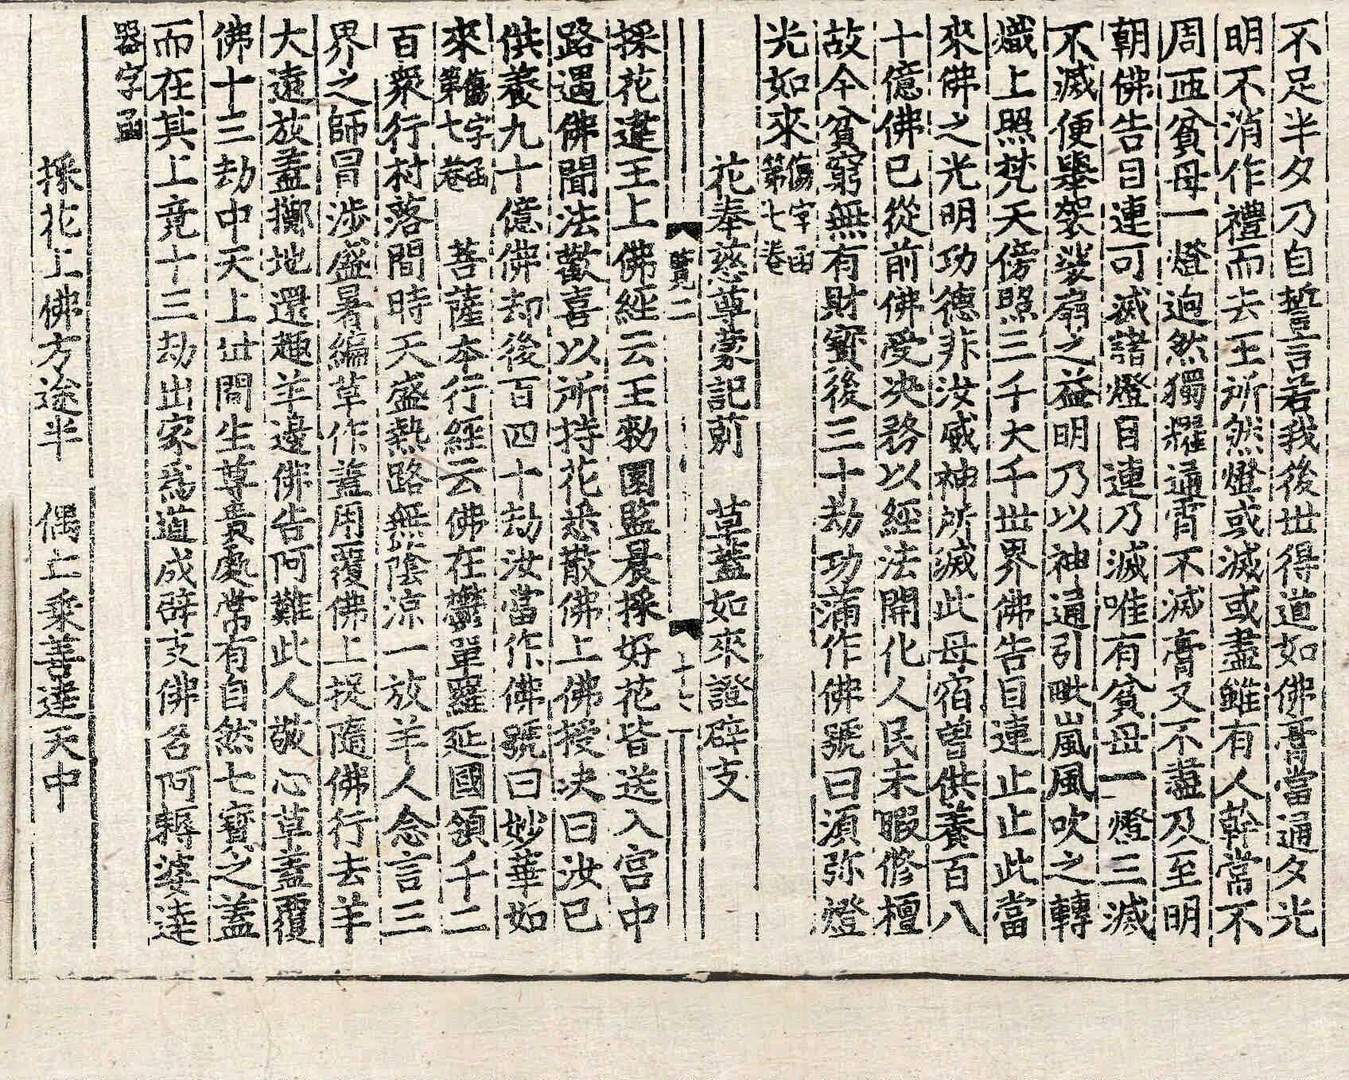 不足半夕乃自誓言若我後世得道如佛膏當通夕光
明不消作禮而去王所然燈或滅或盡雖有人幹當不
周匝貧母一燈逈然獨耀通霄不滅膏又不盡及至明
朝佛告目連可滅諸燈目連乃滅唯有貧母一燈三滅
不滅便舉袈裟扇之益明乃以神通引毗嵐風吹之轉
熾上照梵天傍照三千大千世界佛告目連止止此當
來佛之光明功德非汝威神所滅此母宿曾供養百八
十億佛已從前佛受决務以經法開化人民未暇修檀
故今貧窮無有財寶後三十劫功蒲作佛號曰須弥燈
光如來傷字函第七卷
花奉慈尊蒙記莂 草蓋如來證辟支
覽二
十七
採花違王上佛經云王勑園監晨採好花皆送入宫中
路遇佛聞法歡喜以所持花悉散佛上佛授决曰汝已
供養九十億佛却後百四十劫汝當作佛號曰妙華如
來傷字函第七卷 菩薩本行經云佛在欝單羅延國領千二
百衆行村落間時天盛熱路無陰凉一放羊人念言三
界之師冒涉盛暑編草作蓋用覆佛上捉隨佛行去羊
大遠放蓋擲地還趣羊邊佛告阿難此人敬心草蓋覆
佛十三劫中天上世間生尊貴處常有自然七寶之蓋
而在其上竟十三劫出家爲道成辟支佛名阿耨婆達
器字函
採花上佛方途半 偶上乘善達天中